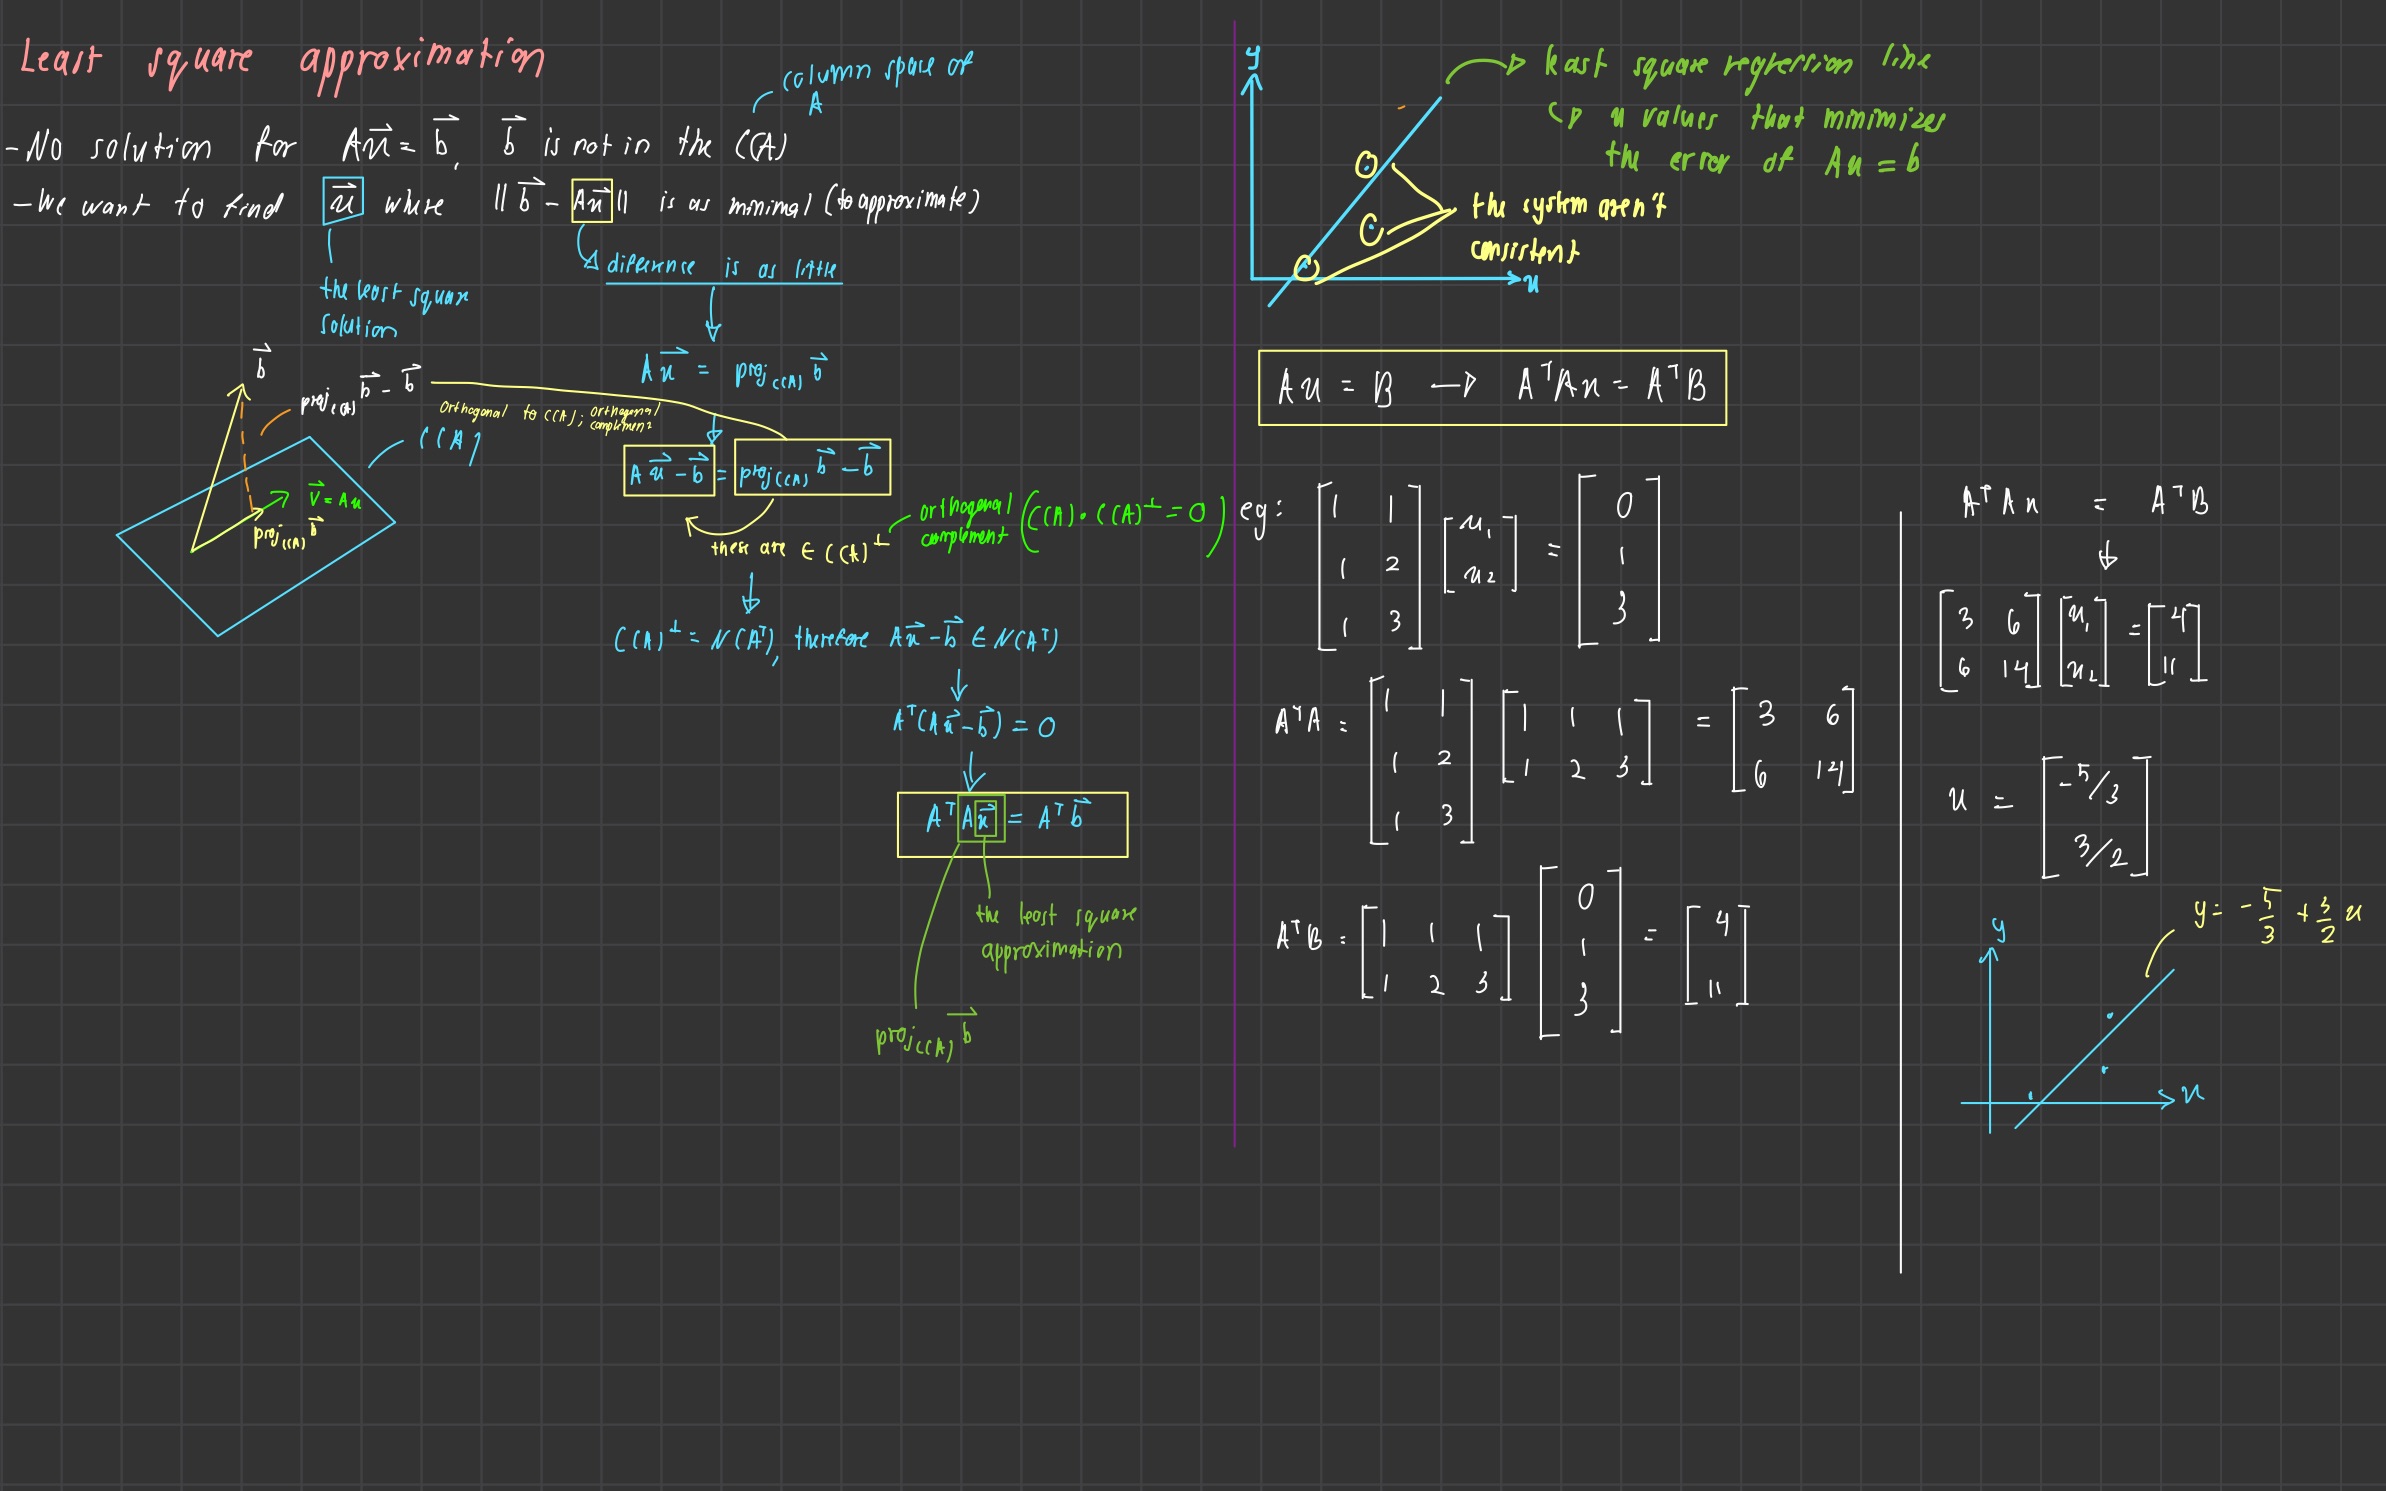 Least square approximation
column space of
A
-No solution for Ax⃗ = b⃗, b⃗ is not in the C(A)
-We want to find x⃗ where ‖b⃗ - Ax⃗‖ is as minimal (to approximate)
the least square
solution
difference is as little
Ax⃗ = proj_C(A) b⃗
b⃗
proj_C(A) b⃗ - b⃗
orthogonal to C(A); orthogonal
complement
C(A)
v⃗ = Ax
proj_C(A) b⃗
Ax⃗ - b⃗ = proj_C(A) b⃗ - b⃗
these are ∈ C(A)^⊥
orthogonal
complement
(C(A) · C(A)^⊥ = 0)
C(A)^⊥ = N(A^T), therefore Ax⃗ - b⃗ ∈ N(A^T)
A^T(Ax⃗ - b⃗) = 0
A^T A x⃗ = A^T b⃗
the least square
approximation
proj_C(A) b⃗
y
x
least square regression line
x values that minimizes
the error of Ax = b
the system aren't
consistent
Ax = B → A^T Ax = A^T B
eg: [1 1; 1 2; 1 3] [x₁; x₂] = [0; 1; 3]
A^T A = [1 1; 1 2; 1 3] [1 1 1; 1 2 3] = [3 6; 6 14]
A^T B = [1 1 1; 1 2 3] [0; 1; 3] = [4; 11]
A^T Ax = A^T B
[3 6; 6 14] [x₁; x₂] = [4; 11]
x = [-5/3; 3/2]
y = -5/3 + 3/2 x
y
x